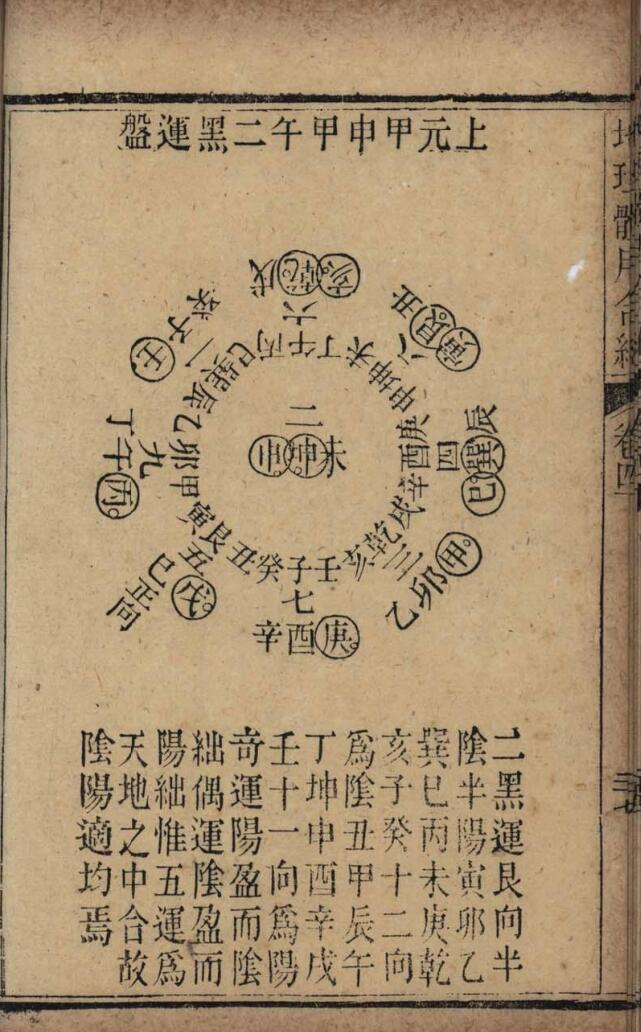 上元甲申甲午二黑運盤
地理體用合編
卷四
戌乾亥
六
丑艮寅
八
辰巽巳
四
甲卯乙
三
庚酉辛
七
戊己正向
五
丙午丁
九
壬子癸
一
丙午丁
未坤申
庚酉辛
戌乾亥
壬子癸
丑艮寅
甲卯乙
辰巽巳
二
未坤申
二黑運艮向半
陰半陽寅卯乙
巽巳丙未庚乾
亥子癸十二向
爲陰丑甲辰午
丁坤申酉辛戌
壬十一向爲陽
奇運陽盈而陰
絀偶運陰盈而
陽絀惟五運爲
天地之中合故
陰陽適均焉